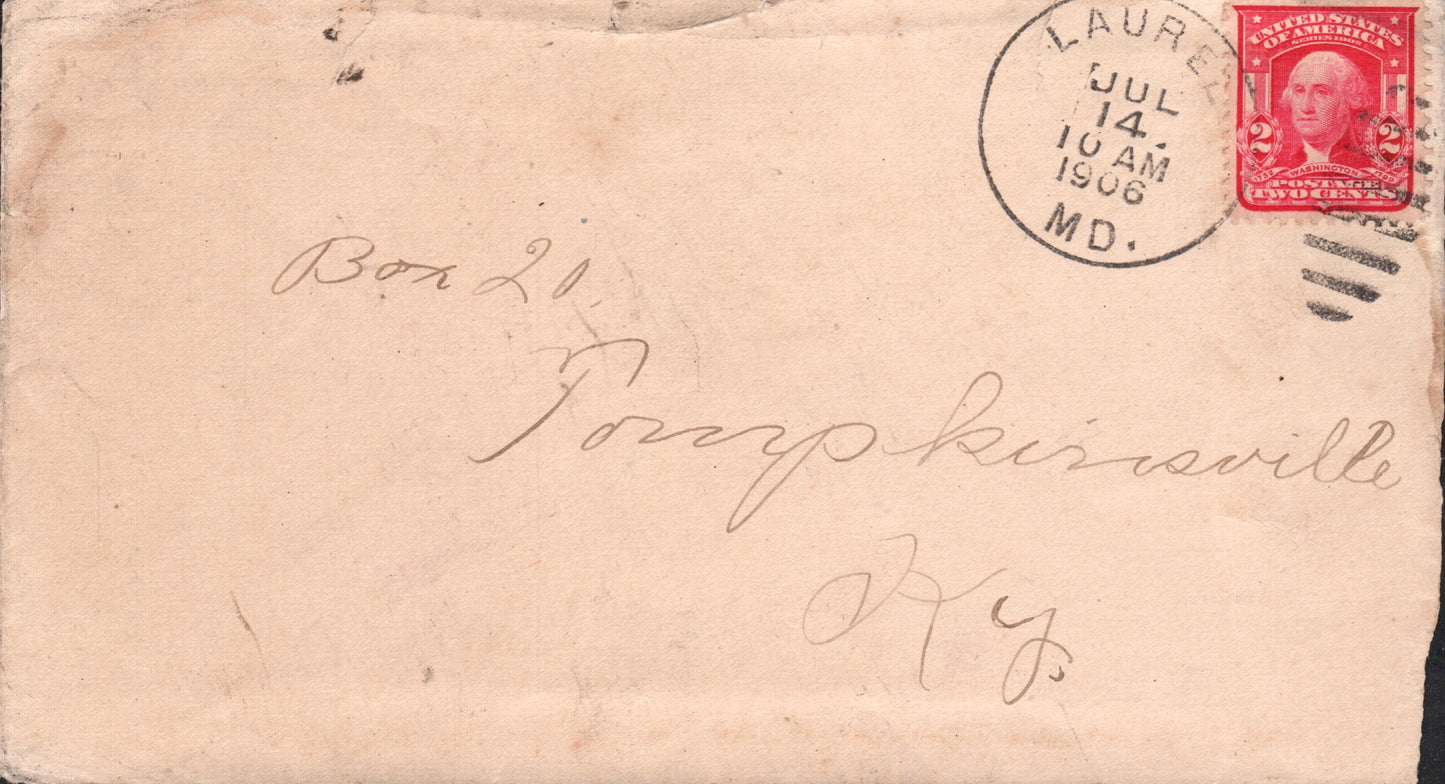 LAUREL
JUL
14.
10 AM
1906
MD.
UNITED STATES
OF AMERICA
SERIES 1902
2 2
1732 WASHINGTON 1799
POSTAGE
TWO CENTS
Box 20.
Tompkinsville
Ky.